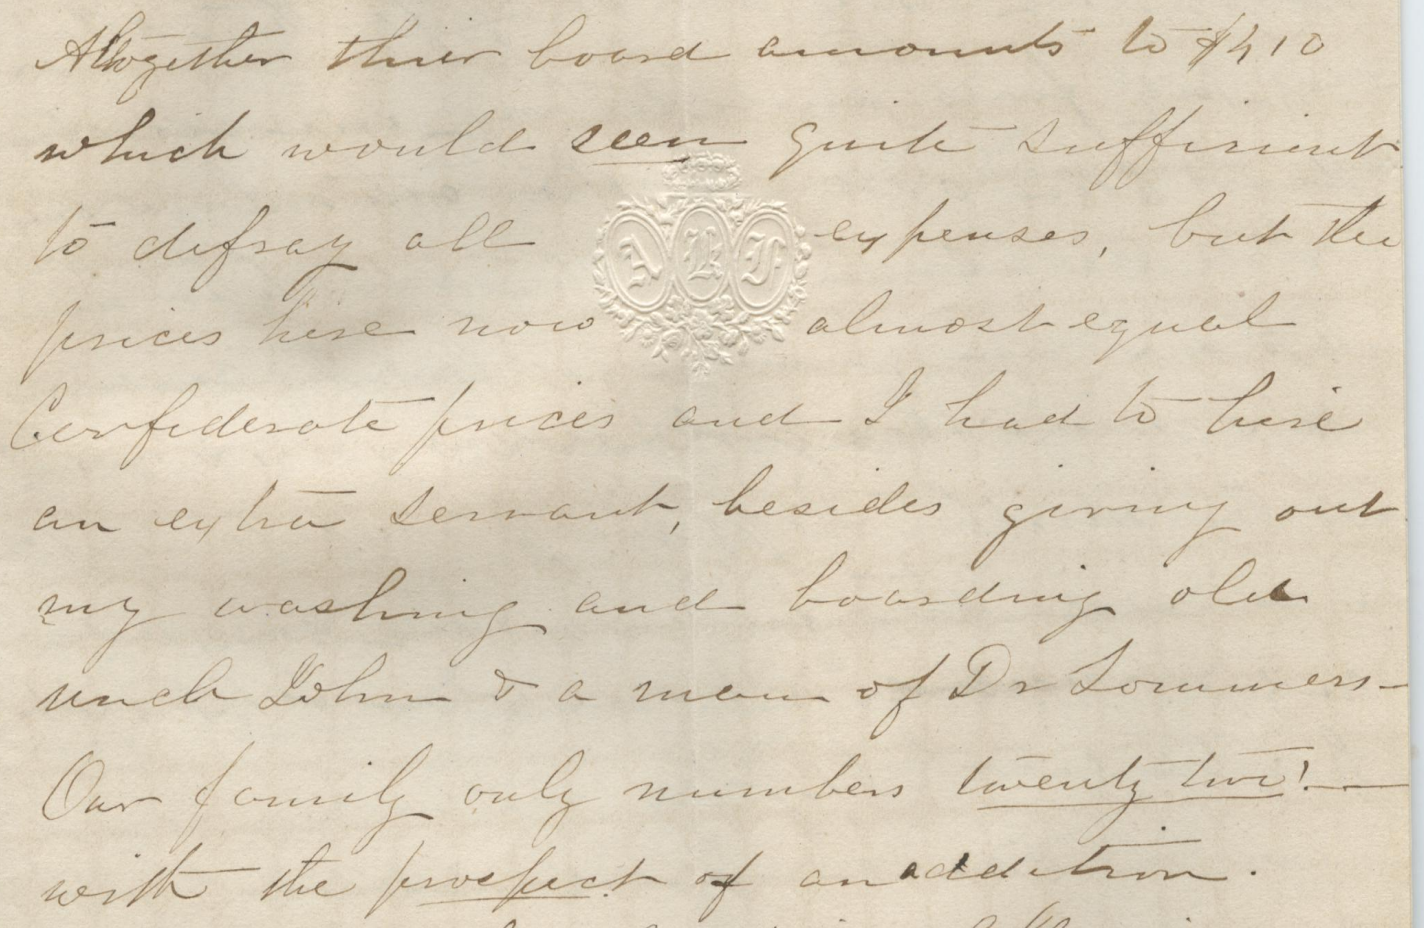 Altogether thier board amounts to $410
which would seem quite sufficient
to defray all expenses, but the
prices here now almost equal
Confederate prices and I had to hire
an extra servant, besides giving out
my washing and boarding old
uncle John & a man of Dr Sommers—
Our family only numbers twenty two!—
with the prospect of an addition.